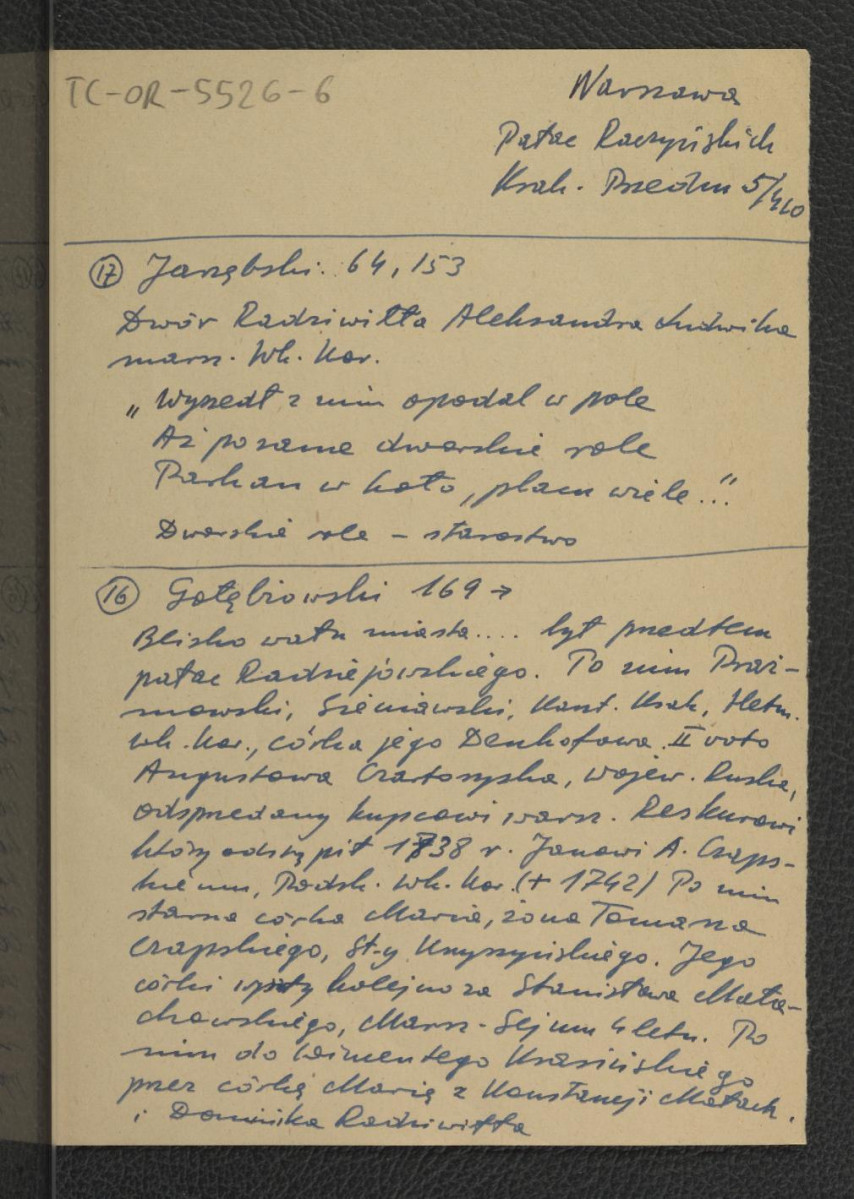 TC-OR-5526-6
Warszawa
Pałac Raczyńskich
Krak. Przedm 5/410
17 Jarzębski. 64, 153
Dwór Radziwiłła Aleksandra Ludwika
marsz. Wk. Kor.
„Wyszedł z nim opodal w pole
Aż po same dworskie role
Parkan w koło, placu wiele..."
Dworskie role – starostwo
16 Gołębiowski 169 →
Blisko wału miasta.... był przedtem
pałac Radziejowskiego. Po nim Praż-
mowski, Sieniawski, Kaszt. Krak, Hetm.
Wk. Kor., córka jego Denhofowa II voto
Augustowa Czartoryska, wojew. Ruska,
odsprzedany kupcowi warsz. Reskurowi
który odstąpił 1738 r. Janowi A. Czaps-
kiemu, Podsk. Wk. Kor. (+ 1742) Po nim
starsza córka Maria, żona Tomasza
Czapskiego, St-y Knyszyńskiego. Jego
córki wyszły kolejno za Stanisława Mała-
chowskiego, Marsz. Sejmu 4 letn. Po
nim do Klimentego Krasińskiego
przez córkę Marię z Konstancji Małach.
i Dominika Radziwiłła